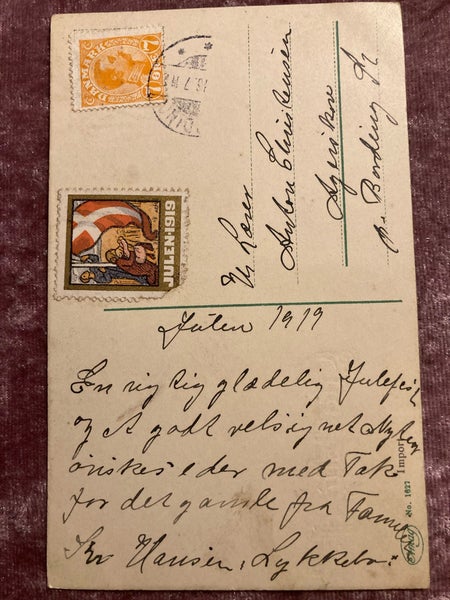 DANMARK
JULEN·1919
Hr Lærer
Anton Christensen
Agerskov
pr. Bording St
Julen 1919
En rigtig glædelig Julefest
og et godt velsignet Nytaar
ønskes eder med Tak
for det gamle fra Familien
Kr Hansen, Lykkebo.
Import
No. 1627